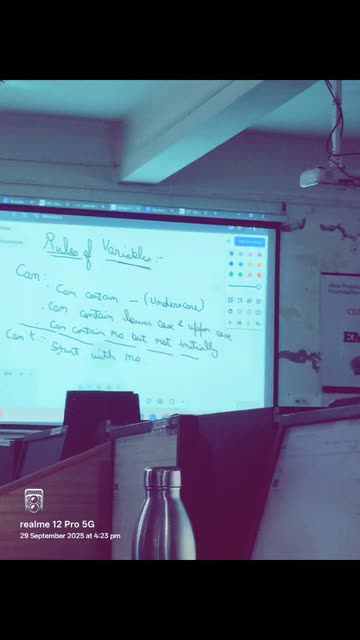 Rules of Variables :-
Can:
Can contain _ (Underscore)
. Can contain lower case & upper case
. Can contain no but not initially
Can't :
Start with no
EM
realme 12 Pro 5G
29 September 2025 at 4:23 pm